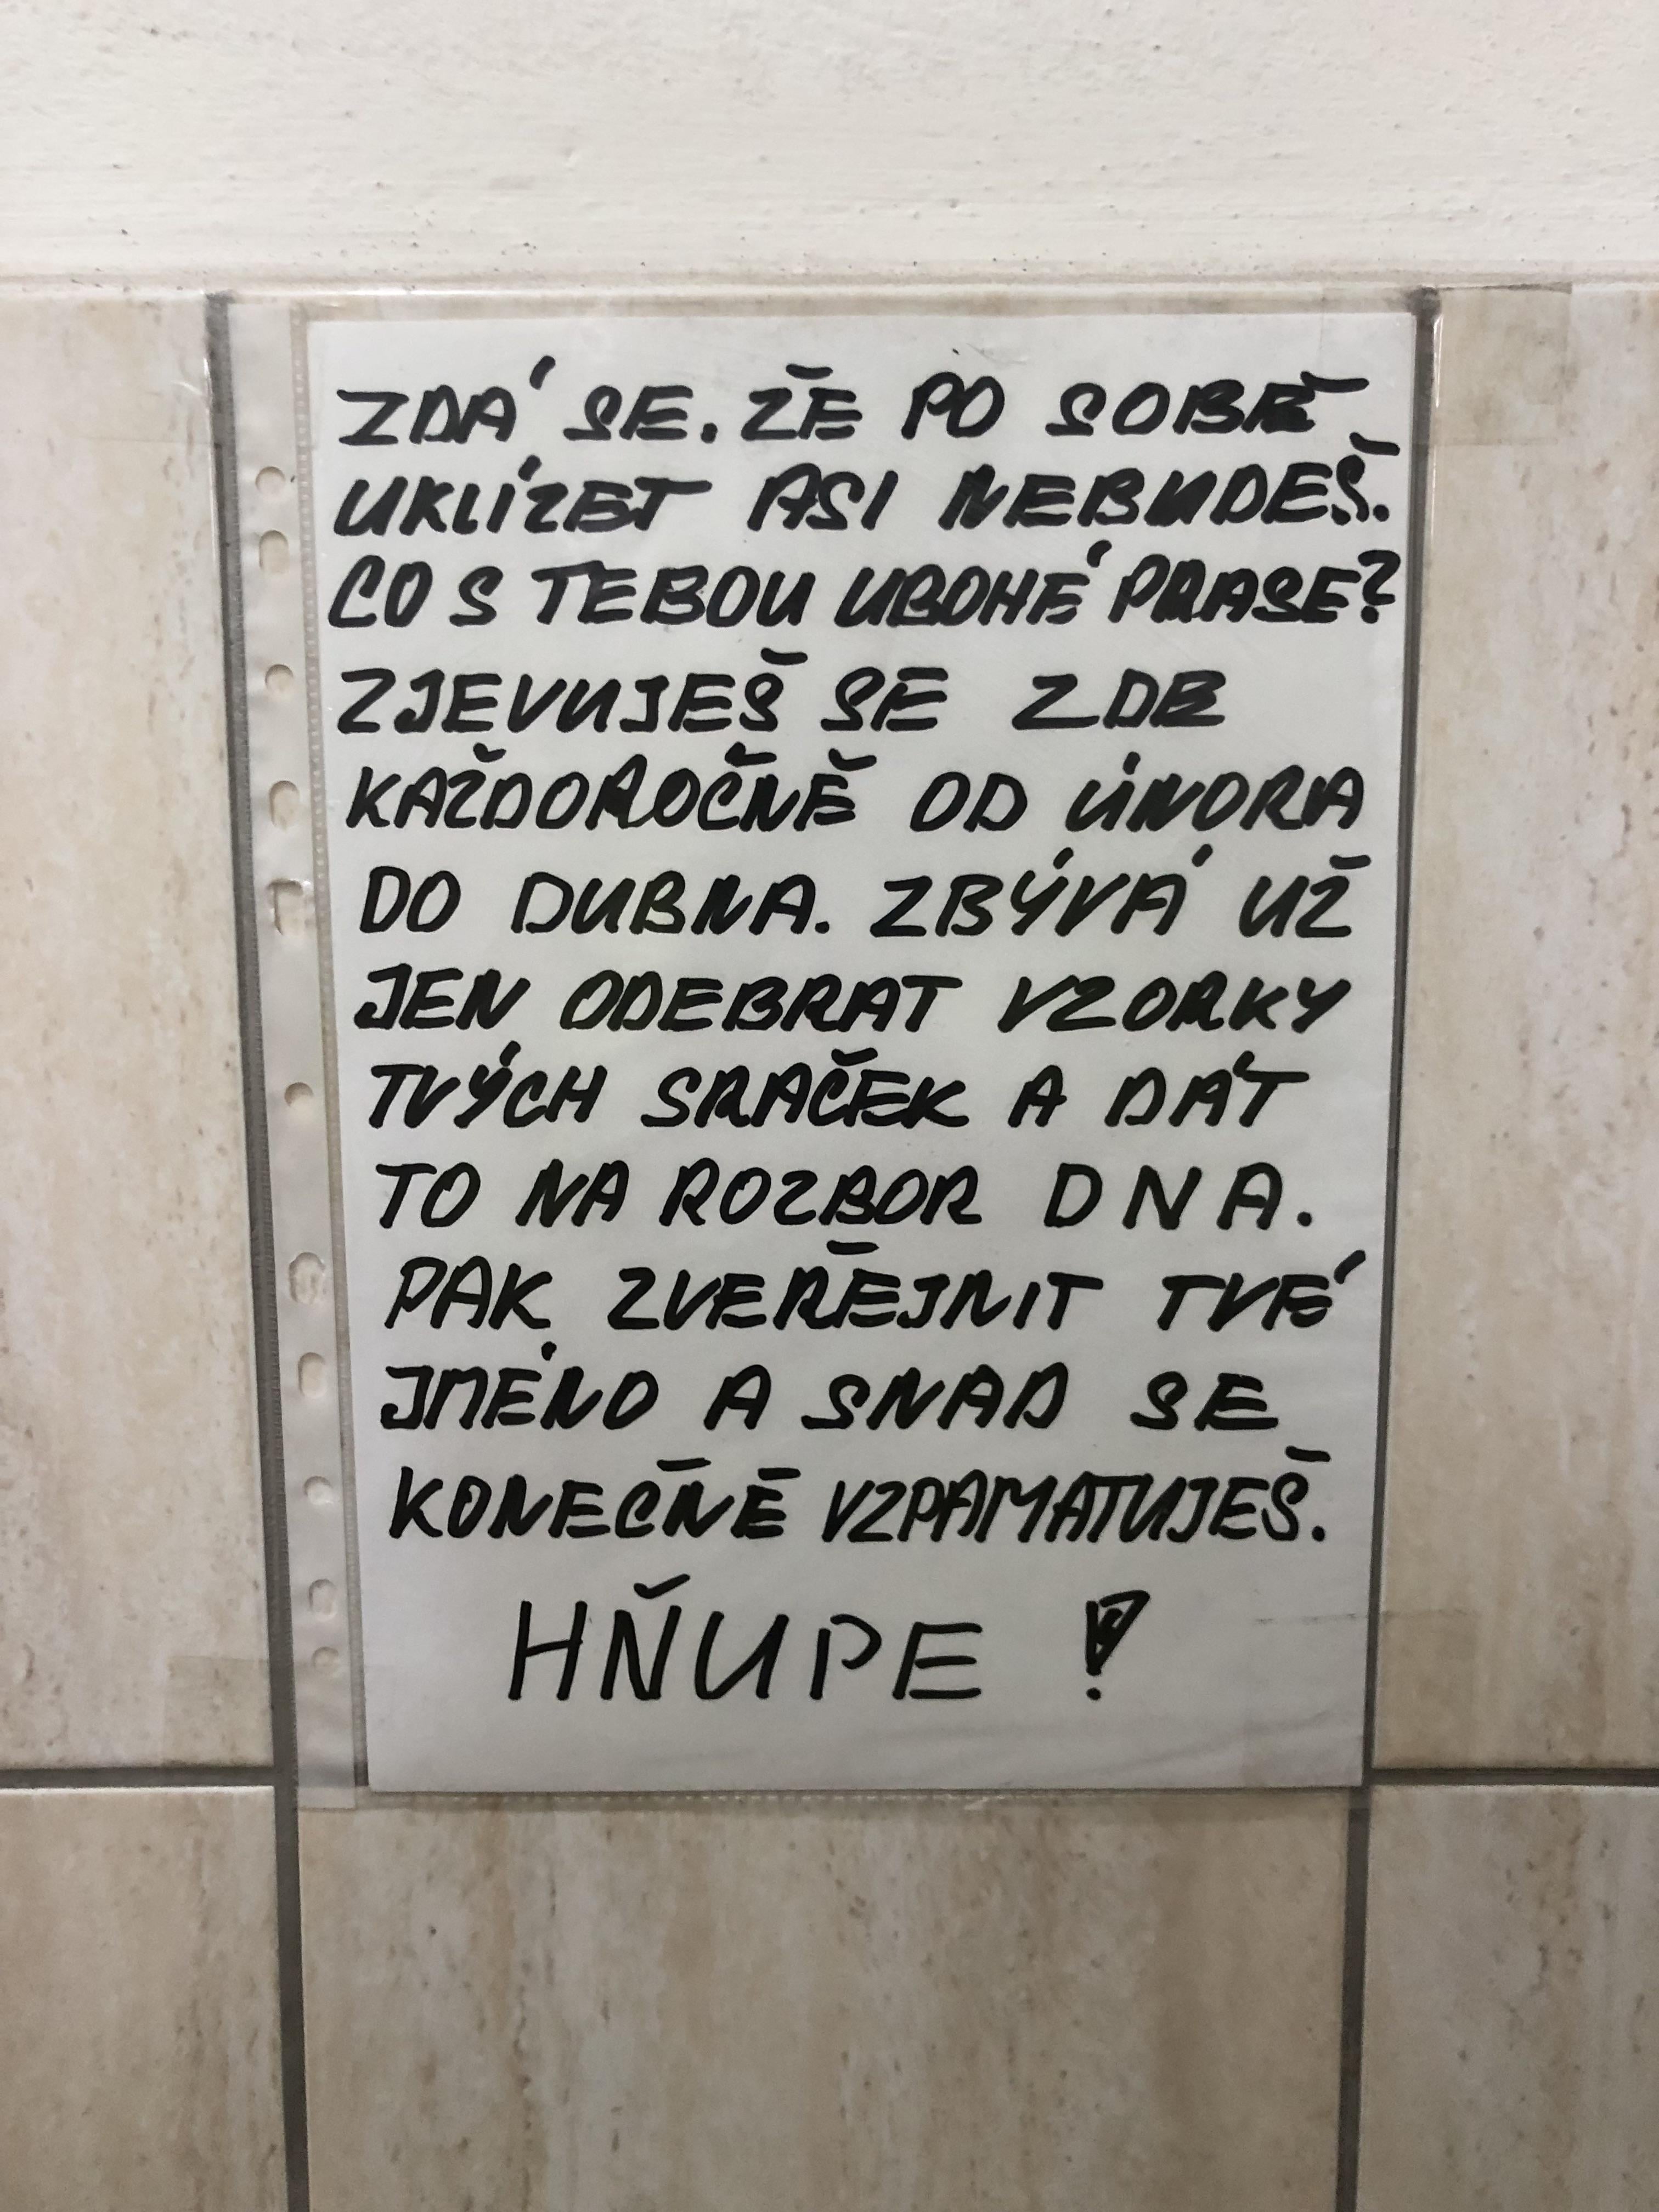 ZDÁ SE. ŽE PO SOBĚ
UKLÍZET ASI NEBUDEŠ.
CO S TEBOU UBOHÉ PRASE?
ZJEVUJEŠ SE ZDE
KAŽDOROČNĚ OD ÚNORA
DO DUBNA. ZBÝVÁ UŽ
JEN ODEBRAT VZORKY
TVÝCH SRAČEK A DÁT
TO NA ROZBOR DNA.
PAK ZVEŘEJNIT TVÉ
JMÉNO A SNAD SE
KONEČNĚ VZPAMATUJEŠ.
HŇUPE!